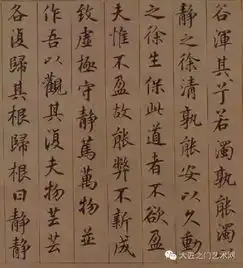 谷渾其兮若濁孰能濁
靜之徐清孰能安以久動
之徐生保此道者不欲盈
夫惟不盈故能弊不新成
致虛極守靜篤萬物並
作吾以觀其復夫物芸芸
各復歸其根歸根曰靜靜
大匠之门艺术网